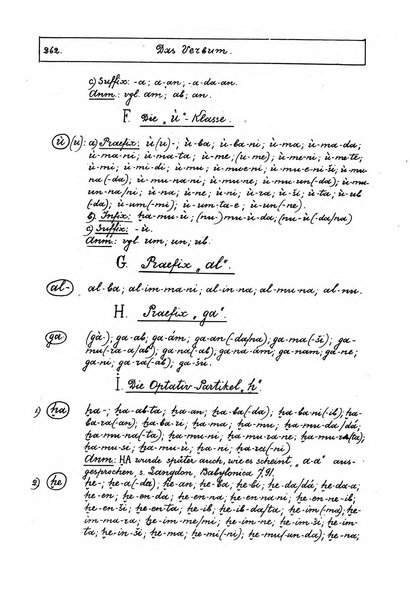 262. Das Verbum.
c) Suffix: -a; a-an; -a-da-an.
Anm.: vgl. am; ab; an.
F. Die „ù“-Klasse.
ù (u): a) Praefix: ù(u)-; ù-ba; ù-ba-ni; ù-ma; ù-ma-da;
ù-ma-ni; ù-ma-ta; ù-me; (u-me); ù-me-ni; ù-me-te;
ù-mi; ù-mi-di; ù-mu; ù-mu-e-ni; ù-mu-e-ni-ši; ù-mu-
na(-da); ù-mu-na-ni; ù-mu-ne; ù-mu-un(-da); ù-mu-
un-na/ni; ù-na; ù-ne; ù-ni; ù-ra; ù-ši; ù-ta; ù-ub
(-da); ù-um(-mi); ù-um-ta-e; ù-un(-ne).
b) Infix: ḫa-mu-ù; (nu-)mu-ù-da; (nu-ù(-da/na)
c) Suffix: -ù.
Anm.: vgl. um, un; ub.
G. Praefix „al“.
al- al-ba; al-im-ma-ni; al-in-na; al-mu-na; al-nu.
H. Praefix „ga“.
ga (gà); ga-ab; ga-àm; ga-an(-da/na); ga-ma(-ši); ga-
mu(-ra-a/ab); ga-na(-ab); ga-na-àm; ga-nam; ga-ne;
ga-ni; ga-ra(-ab); ga-ši.
I. Die Optativ-Partikel „ḫ“
1) ḫa ḫa-; ḫa-ab-ta; ḫa-an; ḫa-ba(-da); ḫa-ba-ni(-ib); ḫa-
ba-ra(-an); ḫa-ba-ši; ḫa-ma; ḫa-mu; ḫa-mu-da/dá;
ḫa-mu-na(-ta); ḫa-mu-ni; ḫa-mu-ra-ne; ḫa-mu-ra/ta;
ḫa-mu-ši; ḫa-mu-ù; ḫa-ni; ḫa-ra(-ni)
Anm.: ḪA wurde später auch, wie es scheint „a-a“ aus-
gesprochen, s. Langdon, Babyloniaca
2) ḫe ḫe-; ḫe-a(-da); ḫe-an; ḫe-ba; ḫe-bi; ḫe-da/dá; ḫe-da-a;
ḫe-en; ḫe-en-da; ḫe-en-na; ḫe-en-na-ni; ḫe-en-ne-ib;
ḫe-en-ši; ḫe-en-ta; ḫe-ib; ḫe-ib-da/ta; ḫe-im(-ma); ḫe-
im-ma-ra; ḫe-im-me/mi; ḫe-im-ne; ḫe-im-ši; ḫe-im-
ta; ḫe-in-ši; ḫe-mi(-ni); ḫe-mu(-un-da); ḫe-na;